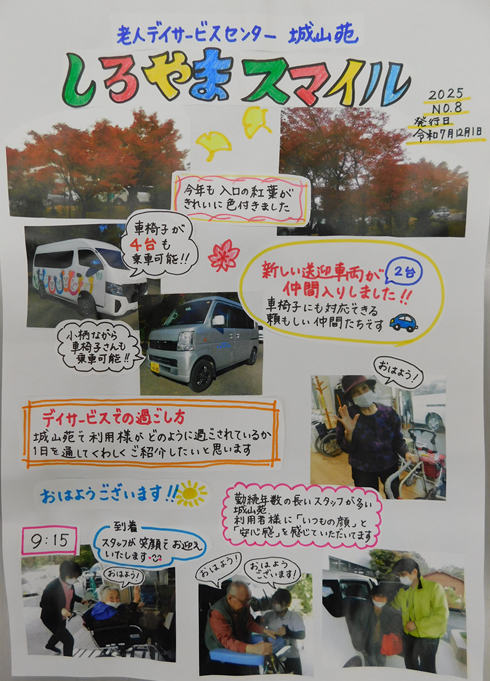 老人デイサービスセンター 城山苑
しろやまスマイル
2025
NO.8
発行日
令和7年12月1日
今年も入口の紅葉が
きれいに色付きました
車椅子が
4台も
乗車可能!!
新しい送迎車両が2台
仲間入りしました!!
車椅子にも対応できる
頼もしい仲間たちです
小柄ながら
車椅子さんも
乗車可能!!
おはよう!
デイサービスでの過ごし方
城山苑で利用様がどのように過ごされているか
1日を通してくわしくご紹介したいと思います
おはようございます!!
勤続年数の長いスタッフが多い
城山苑
利用者様に「いつもの顔」と
「安心感」を感じていただいてます
9:15
到着
スタッフが笑顔でお迎え
いたします
おはよう!
おはよう!
おはよう
ございます!